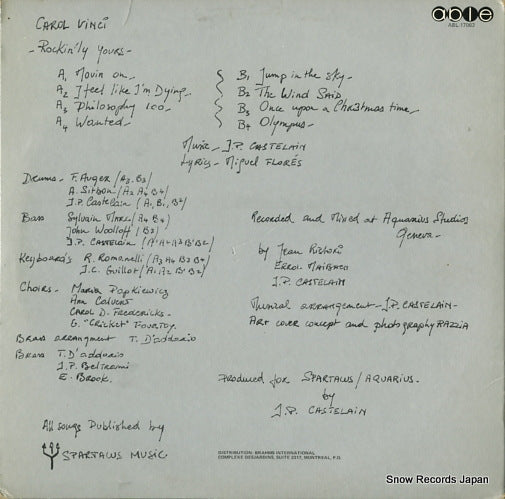 able
ABL 17002
CAROL VINCI
- Rockin'ly Yours -
A1 Movin on -
A2 I feel like I'm Dying -
A3 Philosophy 100 -
A4 Wanted -
B1 Jump in the sky -
B2 The Wind Said
B3 Once upon a Christmas time -
B4 Olympus -
Music - J.P. CASTELAIN
Lyrics - Miguel FLORÉS
Drums - F. Auger / (A3. B3)
A. Sitbon / (A2 A4 B4)
J.P. Castelain (A1, B1, B2)
Bass Sylvain Marc / (A4 B4)
John Woolloff (B3)
J.P. CASTELAIN
Keyboards R. Romanelli / (A3 A4 B3 B4)
J.C. Guillot / (A1 A2 B1 B2)
Choirs - Maria Popkiewicz
Ann Calvert
Carol D. Fredericks -
G. "Cricket" Fourtoy.
Brass arrangment T. D'addario
Brass T. D'addario
J.P. Beltrami
E. Brook.
Recorded and Mixed at Aquarius Studios
Geneva -
by Jean Ristori
Errol
J.P. CASTELAIN
Musical arrangement - J.P. CASTELAIN -
Art cover concept and photography RAZZIA
Produced for SPARTACUS / AQUARIUS -
by
J.P. CASTELAIN
All songs Published by
SPARTACUS MUSIC
DISTRIBUTION: BRAHMS INTERNATIONAL
COMPLEXE DESJARDINS, SUITE 2317, MONTREAL, P.Q.
Snow Records Japan